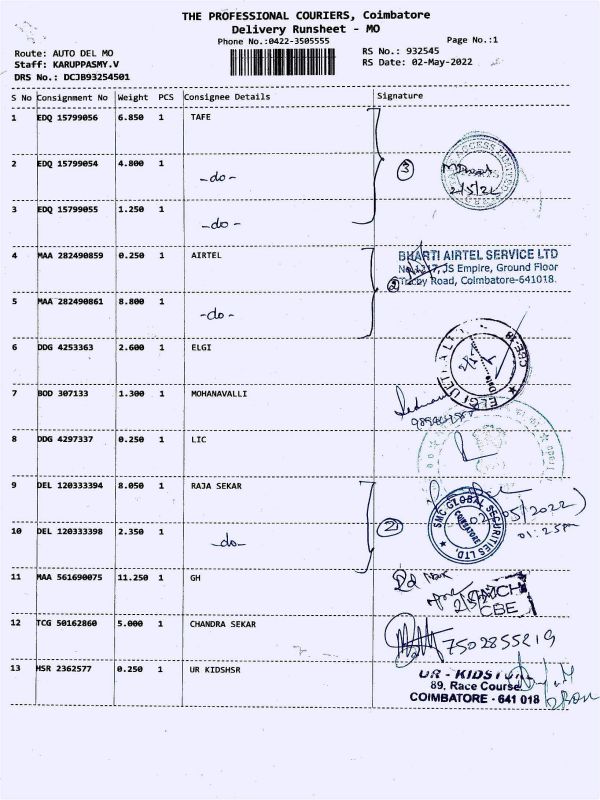 THE PROFESSIONAL COURIERS, Coimbatore
Delivery Runsheet - MO
Phone No.:0422-3505555
Page No.:1
Route: AUTO DEL MO
RS No.: 932545
Staff: KARUPPASMY.V
RS Date: 02-May-2022
DRS No.: DCJB93254501
S No Consignment No Weight PCS Consignee Details Signature
1 EDQ 15799056 6.850 1 TAFE
2 EDQ 15799054 4.800 1 -do-
3
2/5/22
3 EDQ 15799055 1.250 1 -do-
4 MAA 282490859 0.250 1 AIRTEL
BHARTI AIRTEL SERVICE LTD
JS Empire, Ground Floor
Road, Coimbatore-641018.
2
5 MAA 282490861 8.800 1 -do-
6 DDG 4253363 2.600 1 ELGI
CBE-18
ELGI
7 BOD 307133 1.300 1 MOHANAVALLI
8 DDG 4297337 0.250 1 LIC
9 DEL 120333394 8.050 1 RAJA SEKAR
SMC GLOBAL SECURITIES LTD.
COIMBATORE
02/05/2022)
01:25pm
2
10 DEL 120333398 2.350 1 -do-
11 MAA 561690075 11.250 1 GH
CBE
12 TCG 50162860 5.000 1 CHANDRA SEKAR
7502855219
13 HSR 2362577 0.250 1 UR KIDSHSR
UR - KIDS
89, Race Course
COIMBATORE - 641 018